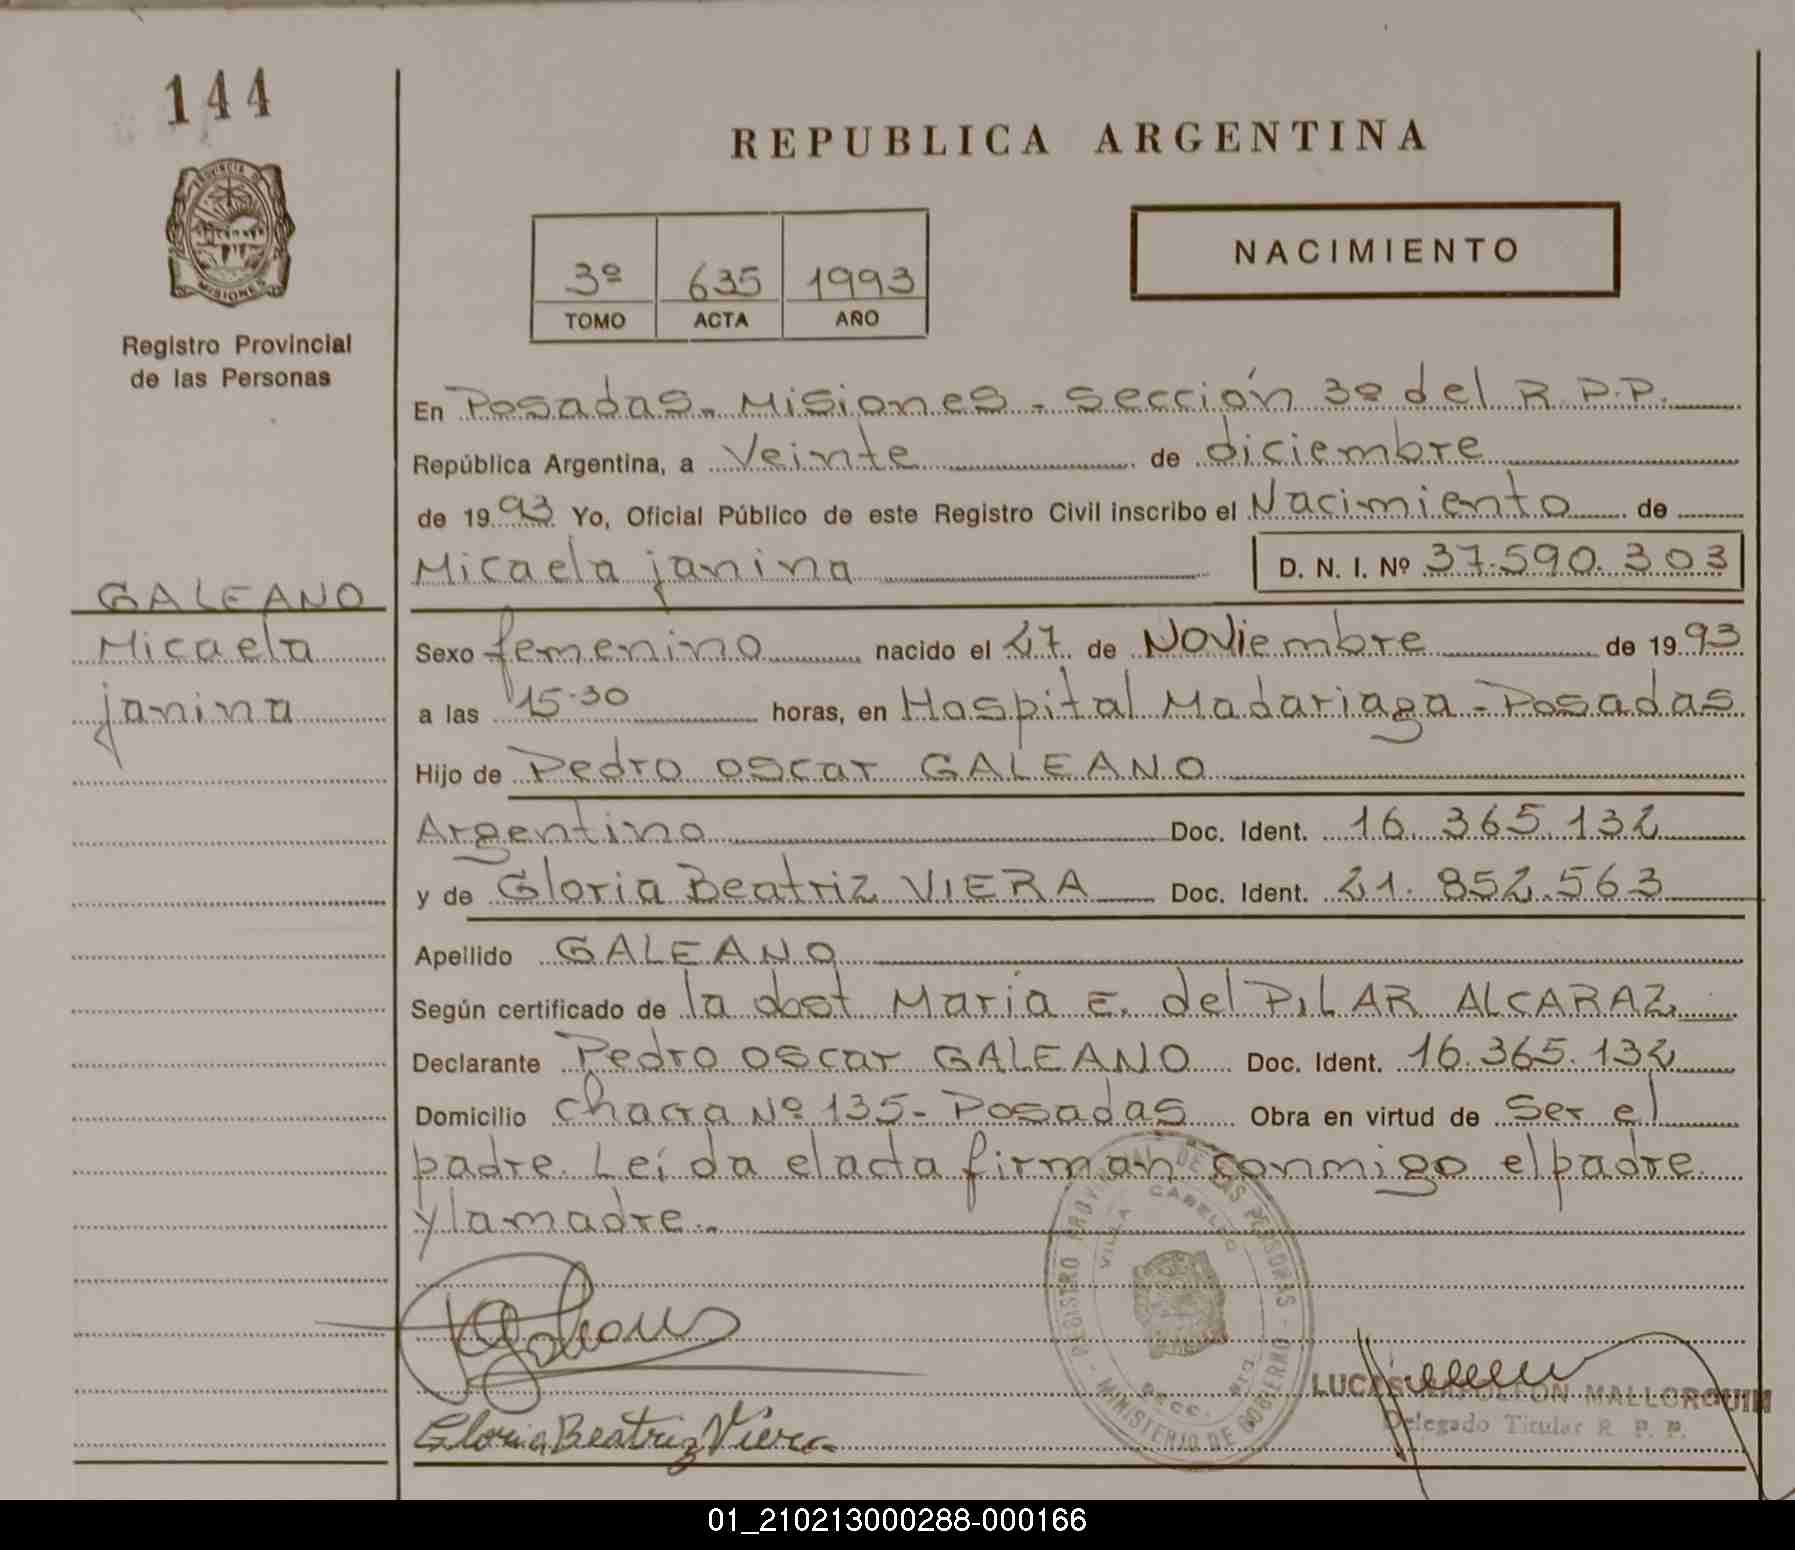 144
REPUBLICA ARGENTINA
PROVINCIA D
MISIONES
Registro Provincial
de las Personas
3º 635 1993
TOMO ACTA AÑO
NACIMIENTO
En Posadas - Misiones - Sección 3º del R.P.P.
República Argentina, a Veinte de diciembre
de 1993 Yo, Oficial Público de este Registro Civil inscribo el Nacimiento de
Micaela janina D. N. I. Nº 37.590.303
GALEANO
Micaela
janina
Sexo femenino nacido el 27 de Noviembre de 1993
a las 15·30 horas, en Hospital Madariaga - Posadas
Hijo de Pedro oscar GALEANO
Argentino Doc. Ident. 16.365.132
y de Gloria Beatriz VIERA Doc. Ident. 21.852.563
Apellido GALEANO
Según certificado de la obst Maria E. del PILAR ALCARAZ
Declarante Pedro oscar GALEANO Doc. Ident. 16.365.132
Domicilio chacra Nº 135 - Posadas Obra en virtud de Ser el
padre. Leí da el acta firman conmigo el padre
y la madre.-
REGISTRO PROVINCIAL DE LAS PERSONAS - MINISTERIO DE GOBIERNO -
VILLA CABELLO
SECC.
Gloria Beatriz Viera
LUCAS NAPOLEON MALLORQUIN
Delegado Titular R. P. P.
01_210213000288-000166